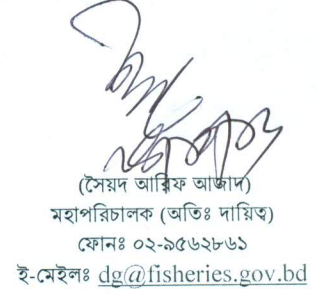 (সৈয়দ আরিফ আজাদ)
মহাপরিচালক (অতিঃ দায়িত্ব)
ফোনঃ ০২-৯৫৬২৮৬১
ই-মেইলঃ dg@fisheries.gov.bd